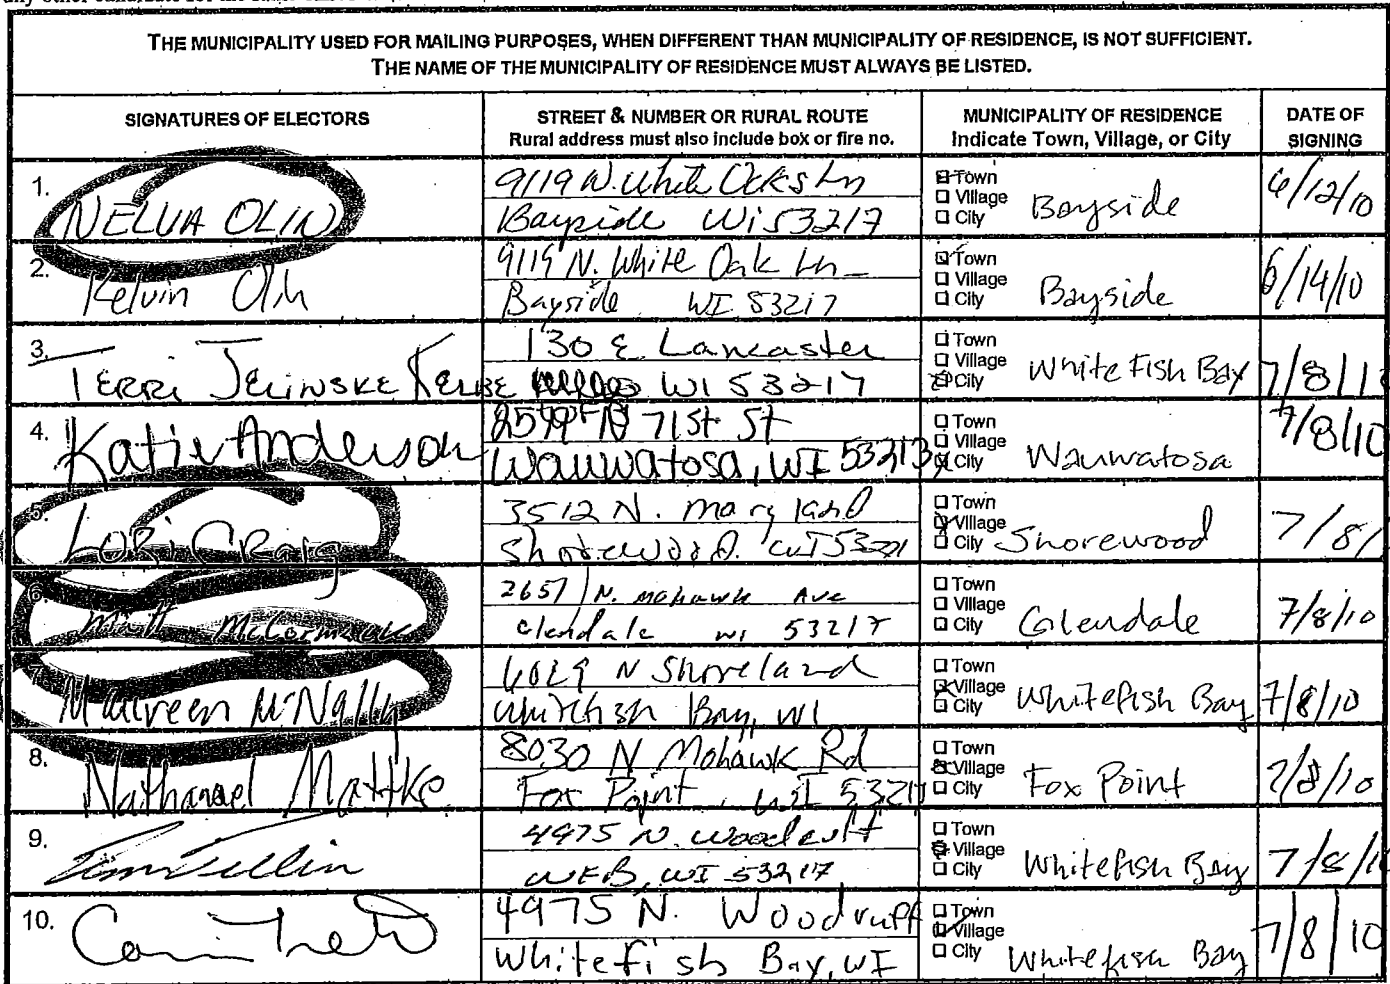 THE MUNICIPALITY USED FOR MAILING PURPOSES, WHEN DIFFERENT THAN MUNICIPALITY OF RESIDENCE, IS NOT SUFFICIENT.
THE NAME OF THE MUNICIPALITY OF RESIDENCE MUST ALWAYS BE LISTED.
SIGNATURES OF ELECTORS
STREET & NUMBER OR RURAL ROUTE
Rural address must also include box or fire no.
MUNICIPALITY OF RESIDENCE
Indicate Town, Village, or City
DATE OF
SIGNING
1. NELVA OLIN
9119 N. White Oaks Ln
Bayside Wi 53217
Town
Village
City
Bayside
6/12/10
2. Kelvin Olin
9119 N. White Oak Ln
Bayside WI 53217
Town
Village
City
Bayside
6/14/10
3. TERRI JELINSKE
130 E Lancaster
WI 53217
Town
Village
City
White Fish Bay
7/8/1
4. Katie Anderson
N 71st St
Wauwatosa, WI 53213
Town
Village
City
Wauwatosa
7/8/10
5. LORI CRAIG
3512 N. Maryland
Shorewood. WI
Town
Village
City
Shorewood
7/8/
6. Matt McCormick
N. Mohawk Ave
Glendale WI 53217
Town
Village
City
Glendale
7/8/10
7. Maureen McNally
6029 N Shoreland
Whitefish Bay, WI
Town
Village
City
Whitefish Bay
7/8/10
8. Nathanael Mattke
8030 N Mohawk Rd
Fox Point, WI 53217
Town
Village
City
Fox Point
7/8/10
9.
4975 N. Woodruff
WFB, WI 53217
Town
Village
City
Whitefish Bay
7/8/1
10.
4975 N. Woodruff
Whitefish Bay, WI
Town
Village
City
Whitefish Bay
7/8/10